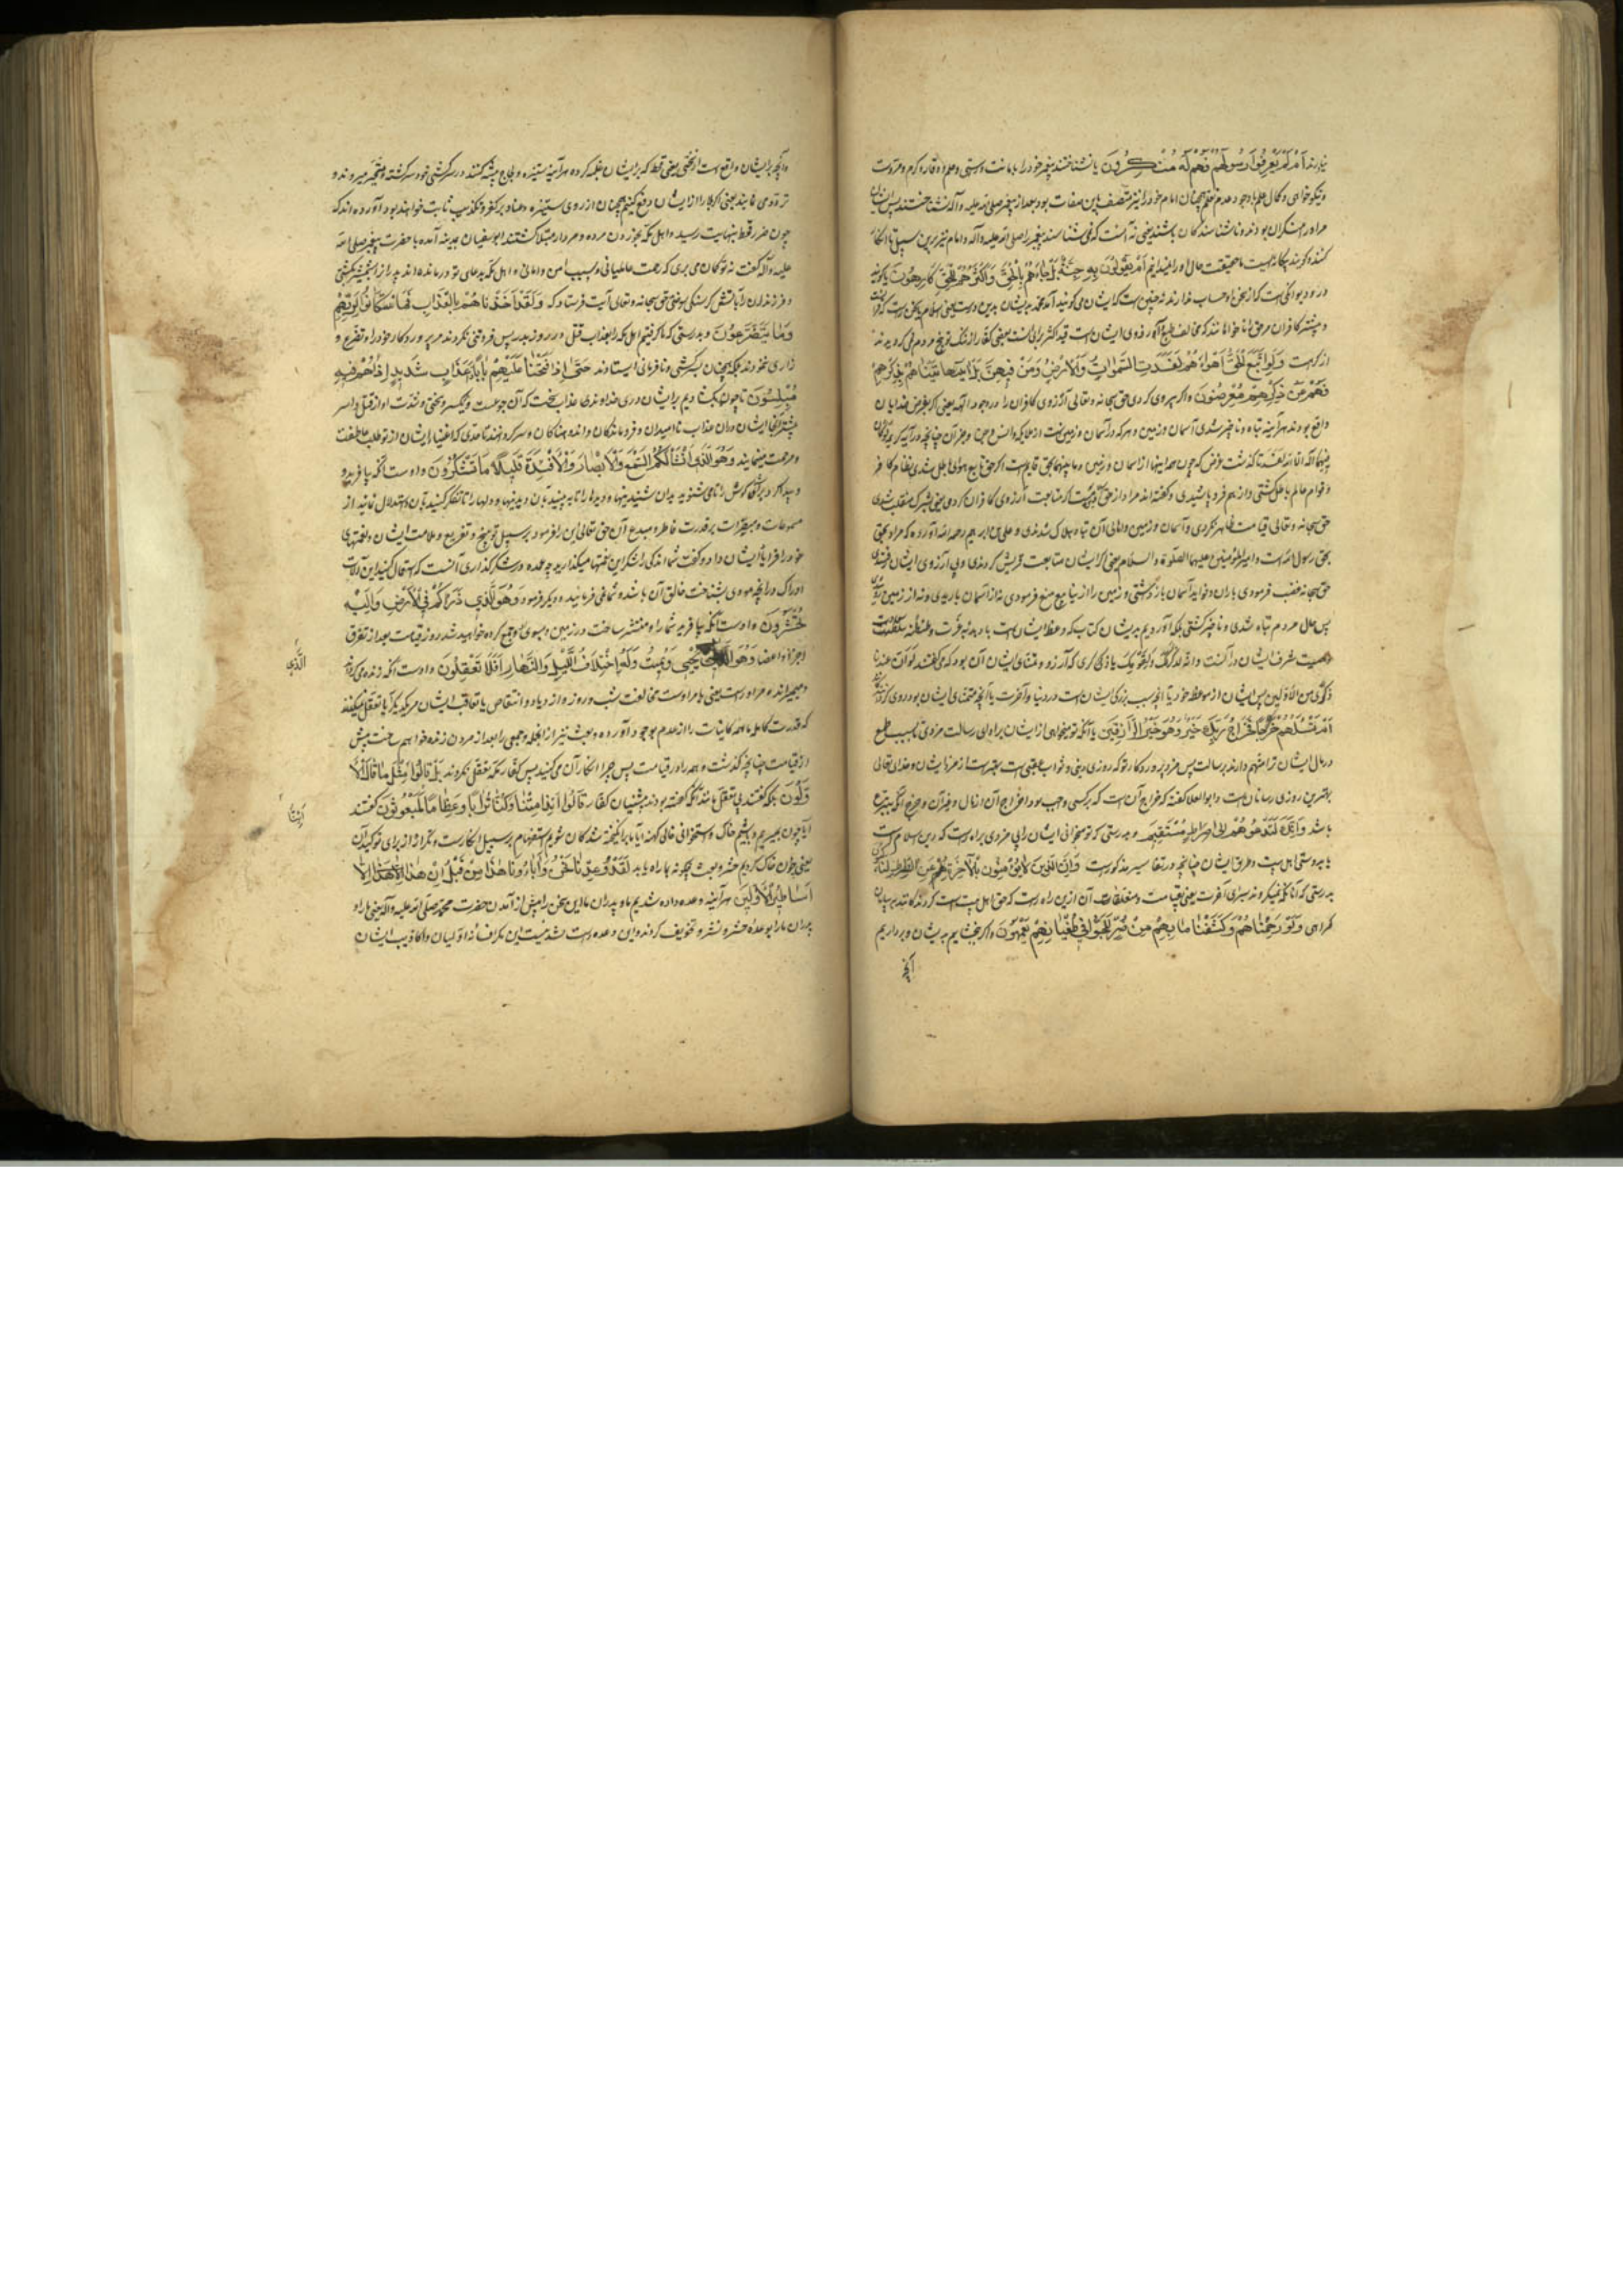 نیارند اَمْ لَمْ یَعْرِفُوا رَسُولَهُمْ فَهُمْ لَهُ مُنْکِرُونَ یا نشناختند پیغمبر خود را بامانت و راستی و حلم و وقار و کرم و مروت
و نیکوخوای و کمال علم با وجود عدم تعلم همچنان امام خود را نیز متصف باین صفات بود بعد از پیغمبر صلی الله علیه وآله نشناختند پس ایشان
مر او را منکران بودند و ناشناسندگان باشند یعنی نه آنست که نمی شناسند پیغمبر را صلی الله علیه وآله و امام نیز برین سبیل تا انکار
کنند و گویند بیگانه است ما حقیقت حال او را نمیدانیم اَمْ یَقُولُونَ بِهِ جِنَّةٌ بَلْ جَاءَهُمْ بِالْحَقِّ وَاَکْثَرُهُمْ لِلْحَقِّ کَارِهُونَ یا گویند
درو دیوانگی است که از سخن او حساب ندارند نه چنین است که ایشان می گویند آمد محمد بدیشان بدین درست یعنی اسلام یا سخن راست که قرآن است
و بیشتر کافران مر حق را ناخواهانند که مخالف طبع و آرزوی ایشان است قید اکثر برای آنست بعضی کفار از ننگ توبیخ مردم نمی گرویدند نه
از کراهت وَلَوِ اتَّبَعَ الْحَقُّ اَهْوَاءَهُمْ لَفَسَدَتِ السَّمٰوَاتُ وَالْاَرْضُ وَمَنْ فِیهِنَّ بَلْ اَتَیْنَاهُمْ بِذِکْرِهِمْ
فَهُمْ عَنْ ذِکْرِهِمْ مُعْرِضُونَ و اگر پیروی کردی حق سبحانه و تعالی آرزوی کافران را در وجود آلهه یعنی اگر بفرض خدایان
واقع بودند هرآینه تباه و ناچیز شدی آسمان و زمین و هر که در آسمان و زمین است از ملایکه و انس و جن و جز آن چنانچه در آیه کریمه لو کان
فیهما آلهة الا الله لفسدتا گذشت
و قوام عالم
حق سبحانه و تعالی قیامت ظاهر کردی و آسمان و زمین و اهالی آن تباه و هلاک شدندی و علی بن ابراهیم رحمه الله آورده که مراد بحق
حق رسول الله است و امیرالمؤمنین علیهما الصلوة والسلام یعنی اگر ایشان متابعت قریش کردندی و پی آرزوی ایشان رفتندی
حق سبحانه غضب فرمودی باران و فواید آسمان باز گشتی و زمین را از نبات منع فرمودی نه از آسمان باریدی و نه از زمین روئیدی
پس حال مردم تباه شدی و ناچیز گشتی بلکه آوردیم بدیشان کتاب که وعظ ایشان است
صیت شرف ایشان در آنست وانه لذکر لک ولقومک یا ذکری که آرزو و متمنای ایشان آن بود که می گفتند لو ان عندنا
ذکرا من الاولین پس ایشان از موعظه خود یا آنچه سبب بزرگی ایشان است در دنیا و آخرت یا آنچه متمنای ایشان بود روی گردانند
اَمْ تَسْئَلُهُمْ خَرْجًا فَخَرَاجُ رَبِّکَ خَیْرٌ وَهُوَ خَیْرُ الرَّازِقِینَ یا آنکه تو میخواهی از ایشان برای ادای رسالت مزدی تا بسبب طمع
در مال ایشان ترا متهم دارند برسالت پس مزد پروردگار تو که روزی دینی و ثواب عقبی است بهتر است از مزد ایشان و خدای تعالی
بهترین روزی رسانان است و ابوالعلا گفته که خراج آن است که بر کسی واجب بود اخراج آن از مال و غیر آن و خرج آنکه بتبرع
باشد وَاِنَّکَ لَتَدْعُوهُمْ اِلٰی صِرَاطٍ مُسْتَقِیمٍ و بدرستی که تو میخوانی ایشان را بی مزدی براه راست که دین اسلام است
یا بدوستی اهل بیت و طریق ایشان چنانچه در تفاسیر مذکورست وَاِنَّ الَّذِینَ لَا یُؤْمِنُونَ بِالْاٰخِرَةِ عَنِ الصِّرَاطِ لَنَاکِبُونَ
بدرستی که آنانکه نمیگروند بسرای آخرت یعنی بقیامت و متعلقات آن ازین راه راست که حق اهل بیت است گردندگانند به بیابان
گمراهی وَلَوْ رَحِمْنَاهُمْ وَکَشَفْنَا مَا بِهِمْ مِنْ ضُرٍّ لَلَجُّوا فِی طُغْیَانِهِمْ یَعْمَهُونَ و اگر ببخشایم بدیشان و برداریم
آنچه
وانچه بدیشان واقع است از سختی یعنی قحط که بر ایشان غلبه کرده هرآینه ستیزه و لجاج پیشه کنند در سرکشی خود سرگشته و متحیر میروند و
تردد می نمایند یعنی اگر بلا را از ایشان دفع کنیم همچنان از روی ستیزه و عناد بر کفر و تکذیب ثابت خواهند بود آورده اند که
چون ضرر قحط بنهایت رسید و اهل مکه بخوردن مرده و مردار مبتلا گشتند ابوسفیان بمدینه آمده با حضرت پیغمبر صلی الله
علیه وآله گفت نه تو گمان می بری که رحمت عالمیانی و سبب امن و امانی و اهل مکه بدعای تو درمانده اند پدران را بشمشیر کشتی
و فرزندان را بآتش گرسنگی سوختی حق سبحانه و تعالی آیت فرستاد که وَلَقَدْ اَخَذْنَاهُمْ بِالْعَذَابِ فَمَا اسْتَکَانُوا لِرَبِّهِمْ
وَمَا یَتَضَرَّعُونَ و بدرستی که ما گرفتیم اهل مکه را بعذاب قتل در روز بدر پس فروتنی نکردند مر پروردگار خود را و تضرع و
زاری ننمودند بلکه همچنان بسرکشی و نافرمانی ایستادند حَتّٰی اِذَا فَتَحْنَا عَلَیْهِمْ بَابًا ذَا عَذَابٍ شَدِیدٍ اِذَا هُمْ فِیهِ
مُبْلِسُونَ تا چون بگشادیم بر ایشان دری خداوندی عذاب سخت که آن جوع است و سختی و شدت او از قتل و اسر
بیشتر آنجا ایشان دران عذاب ناامیدان و فروماندگان و اندوهناکان و سرگردانند تا حدی که اغنیاء ایشان از تو طلب عاطفت
و مرحمت مینمایند وَهُوَ الَّذِی اَنْشَاَ لَکُمُ السَّمْعَ وَالْاَبْصَارَ وَالْاَفْئِدَةَ قَلِیلًا مَا تَشْکُرُونَ و اوست آنکه بیافرید و
پیدا کرد برای شما گوش را تا می شنوید بدان شنیدنیها و دیده را تا به بینید بآن دیدنیها و دلها را تا تفکر کنید بآن و استدلال نمائید از
مسموعات و مبصرات بر قدرت فاطر و مبدع آن حق تعالی این را فرمود بر سبیل توبیخ و تقریع و ملامت ایشان و نعمتهای
خود را فرایاد ایشان داد و گفت شما اندکی را شکر این نعمتها میگذارید چه عمده در شکرگذاری آنست که استعمال کنید این آلات
ادراک را در آنچه مودی بشناخت خالق آن باشد و شما نمی فرمائید و دیگر فرمود وَهُوَ الَّذِی ذَرَاَکُمْ فِی الْاَرْضِ وَاِلَیْهِ
تُحْشَرُونَ و اوست آنکه بیافرید شما را و منتشر ساخت در زمین و بسوی او جمع کرده خواهید شد روز قیامت بعد از تفرق
اجزا و اعضا وَهُوَ الَّذِی یُحْیِی وَیُمِیتُ وَلَهُ اخْتِلَافُ اللَّیْلِ وَالنَّهَارِ اَفَلَا تَعْقِلُونَ و اوست آنکه زنده می گرداند
الَّذِی
و میمیراند و مر او راست یعنی بامر اوست مخالفت شب و روز و ازدیاد و انتقاص یا تعاقب ایشان مر یکدیگر آیا تعقل نمیکنید
که قدرت کامله ما همه کاینات را از عدم بوجود آورده و بعث نیز از آنجمله و جمعی را بعد از مردن زنده خواهیم ساخت پیش
از قیامت چنانچه گذشت و همه را در قیامت پس چرا انکار آن می کنید پس کفار مکه تعقل نکردند بَلْ قَالُوا مِثْلَ مَا قَالَ الْاَ
وَّلُونَ بلکه گفتند بی تعقل مانند آنکه گفته بودند پیشینیان کفار قَالُوا اَئِذَا مِتْنَا وَکُنَّا تُرَابًا وَعِظَامًا لَمَبْعُوثُونَ گفتند
اَئِنَّا
آیا چون بمیریم و باشیم خاک و استخوانی خالی کهنه آیا ما برانگیخته شدگان شویم استفهام بر سبیل انکارست و تکرار او از برای توکید آن
یعنی چون خاک گردیم حشر و بعث چگونه بما راه یابد لَقَدْ وُعِدْنَا نَحْنُ وَاٰبَاؤُنَا هٰذَا مِنْ قَبْلُ اِنْ هٰذَا اِلَّا
اَسَاطِیرُ الْاَوَّلِینَ هرآینه وعده داده شدیم ما و پدران ما این سخن را پیش از آمدن حضرت محمد صلی الله علیه وآله یعنی ما را و
پدران ما را بوعده حشر و نشر و تخویف کردند و این وعده راست نشد نیست این مگر افسانه اولیان و اکاذیب ایشان